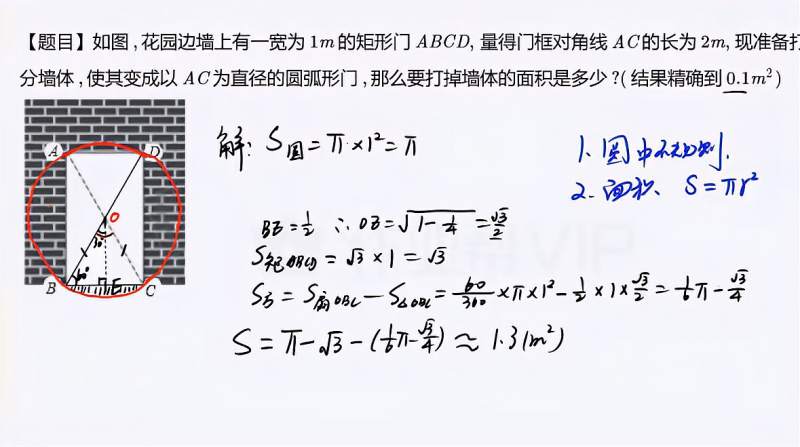 【题目】如图,花园边墙上有一宽为1m的矩形门ABCD,量得门框对角线AC的长为2m,现准备打
分墙体,使其变成以AC为直径的圆弧形门,那么要打掉墙体的面积是多少?(结果精确到0.1m²)
解: S圆=π×1²=π
1、圆中不规则.
2. 面积、 S=πr²
A D
O
30°
1 1
60°
B E C
BE=1/2 ∴OE=√(1-1/4)=√3/2
S矩ABCD=√3×1=√3
S弓=S扇OBC-S△OBC=60/360×π×1²-1/2×1×√3/2=1/6π-√3/4
S=π-√3-(1/6π-√3/4)≈1.3(m²)
VIP